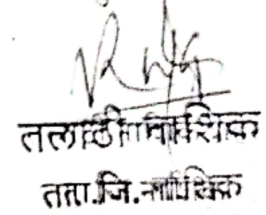 तलाठी नाशिक
ता.जि.नाशिक